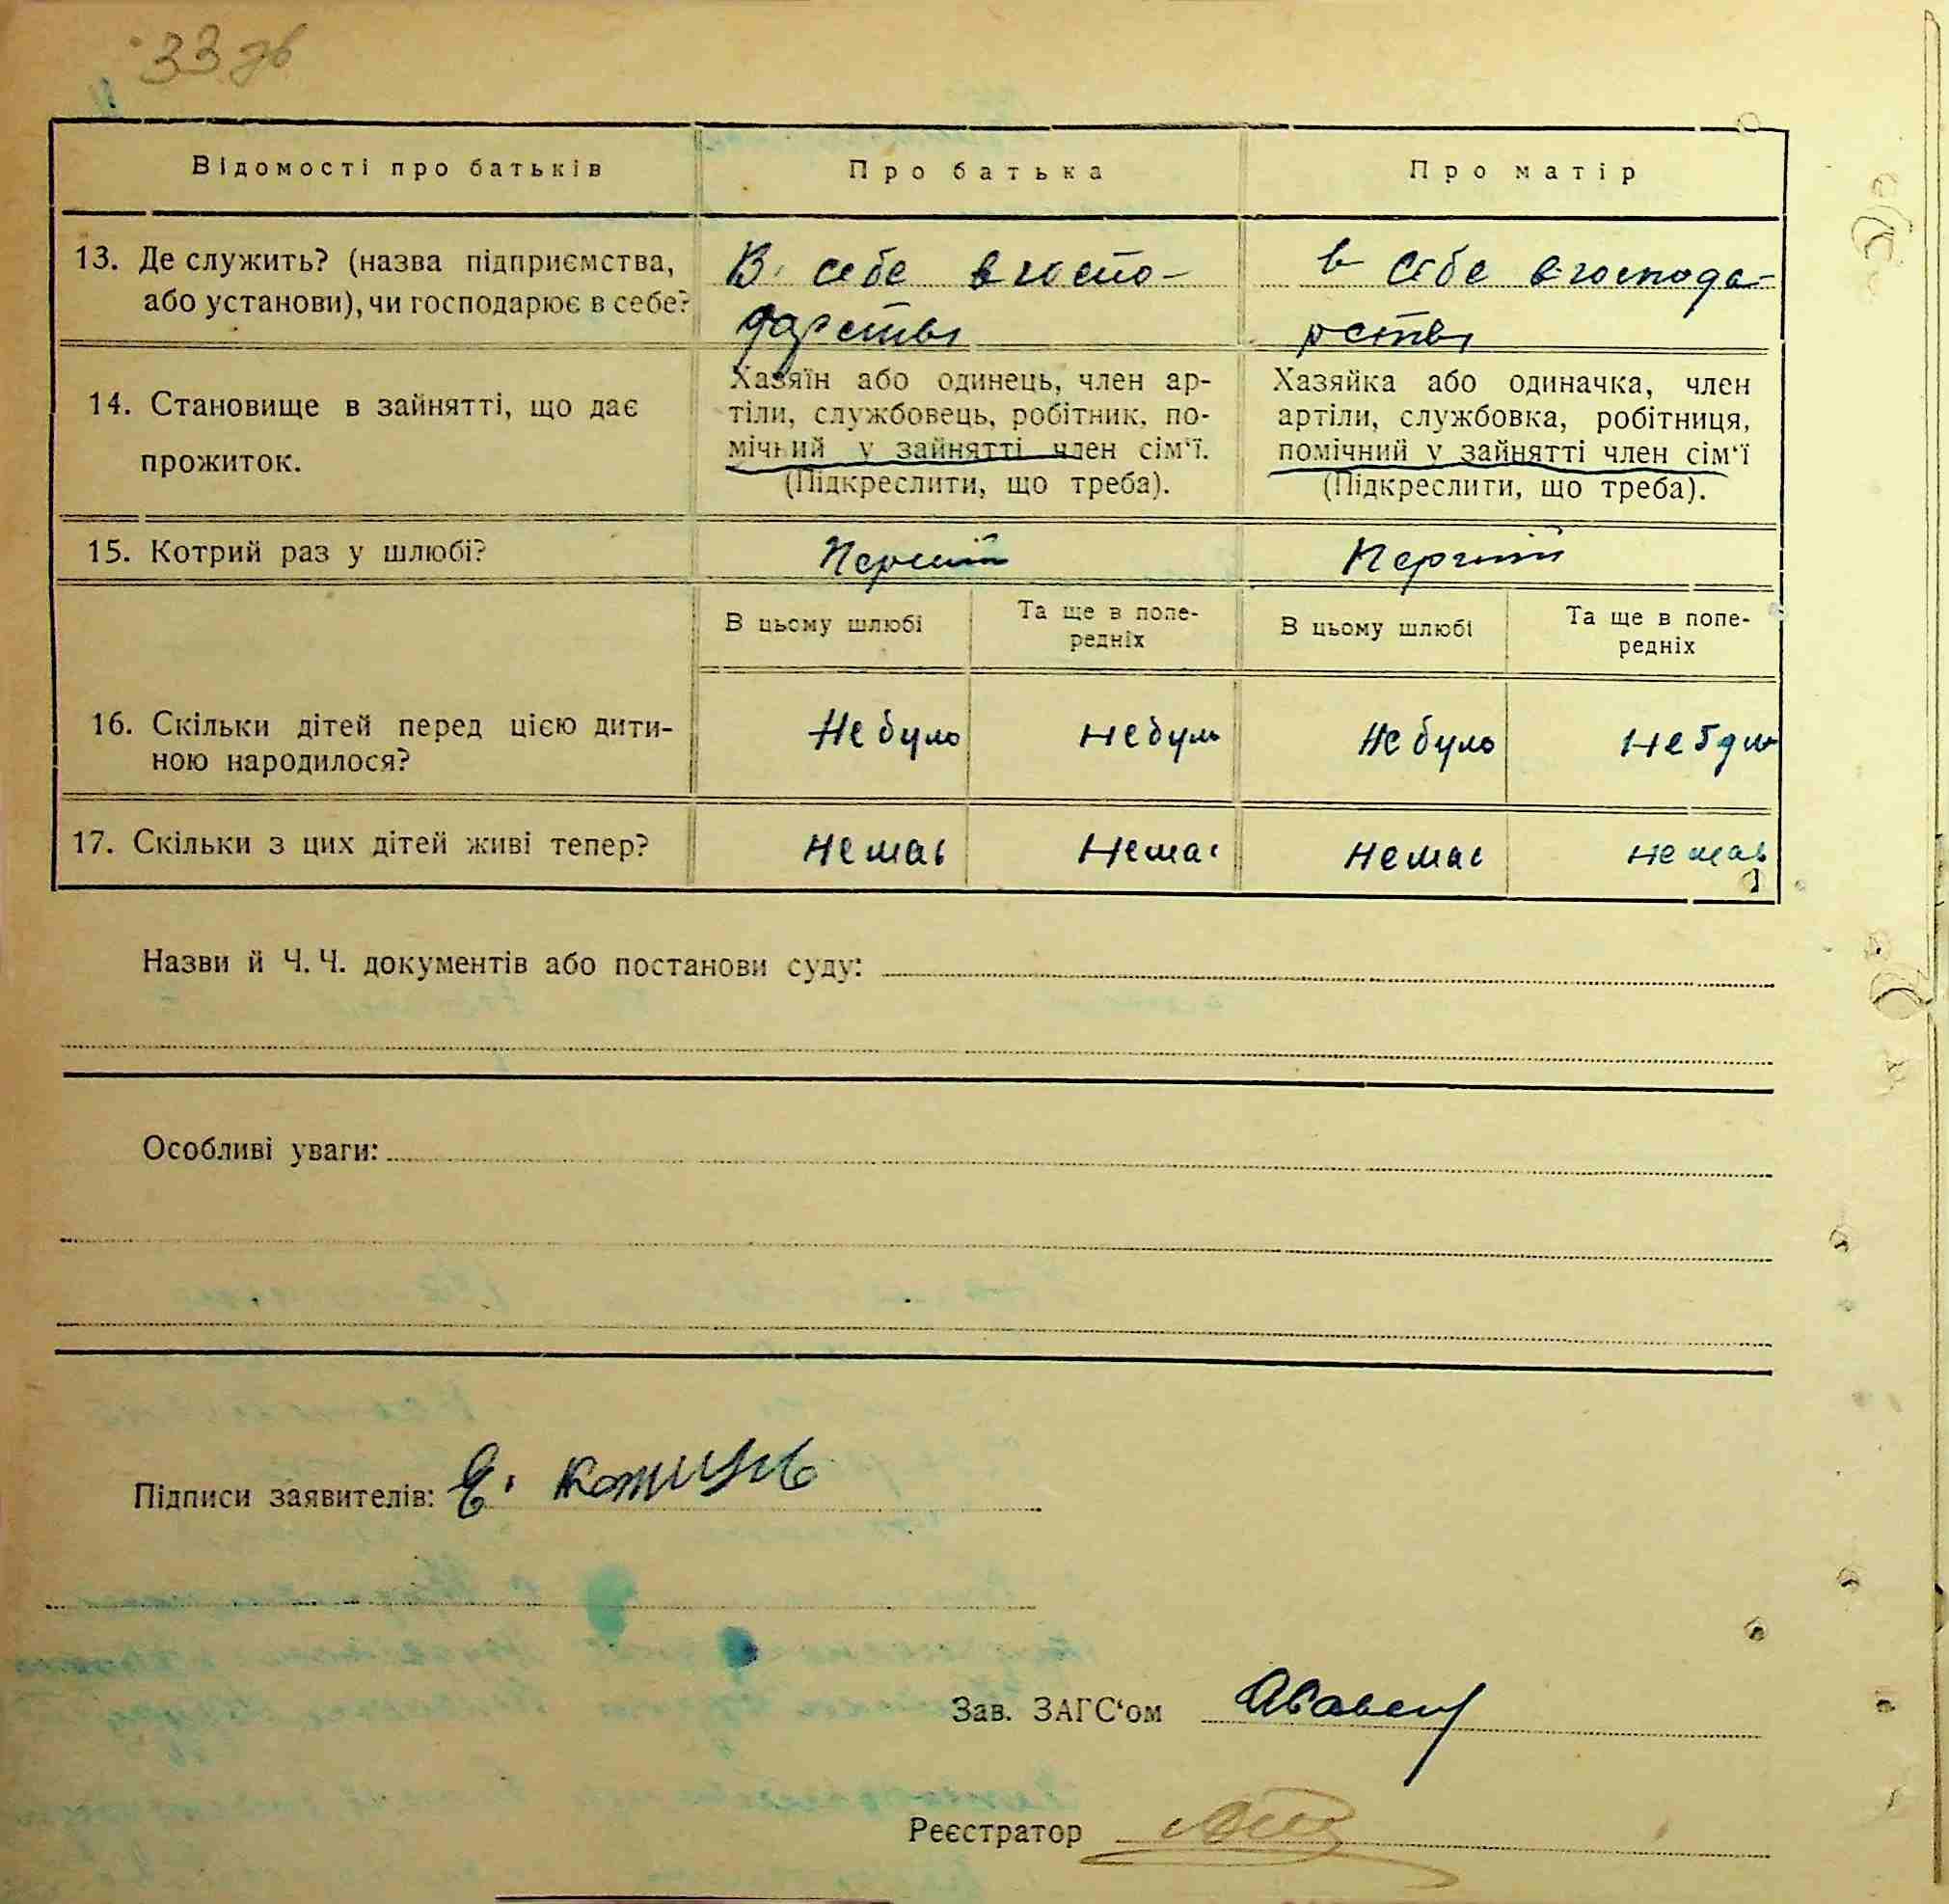 33 зв
Відомості про батьків Про батька Про матір
13. Де служить? (назва підприємства, В себе в госпо- в себе в господа-
або установи), чи господарює в себе? дарстві рстві
14. Становище в зайнятті, що дає прожиток.
Хазяїн або одинець, член ар-
тіли, службовець, робітник, по-
мічний у зайнятті член сім'ї.
(Підкреслити, що треба).
Хазяйка або одиначка, член
артіли, службовка, робітниця,
помічний у зайнятті член сім'ї
(Підкреслити, що треба).
15. Котрий раз у шлюбі? Перший Перший
В цьому шлюбі Та ще в попе- В цьому шлюбі Та ще в попе-
редніх редніх
16. Скільки дітей перед цією дити- Не було не було Не було не було
ною народилося?
17. Скільки з цих дітей живі тепер? Немає Немає Немає Немає
Назви й Ч. Ч. документів або постанови суду:
Особливі уваги:
Підписи заявителів:
Зав. ЗАГС'ом
Реєстратор